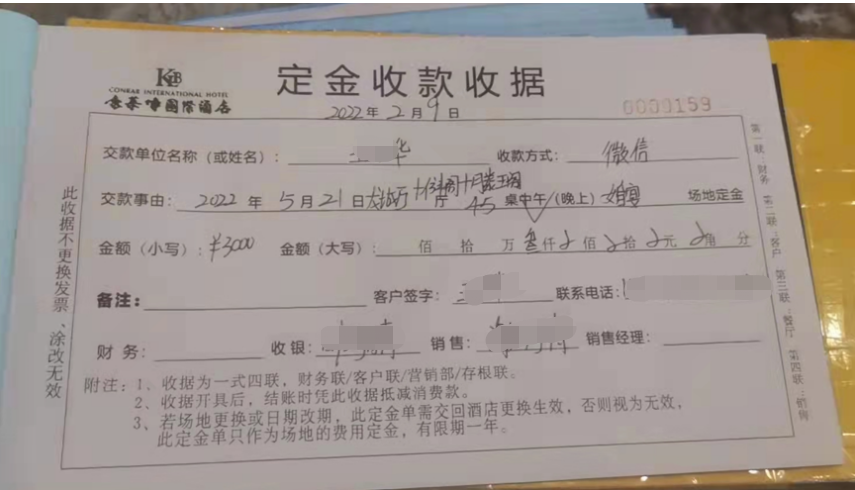 KLB
定金收款收据
CONRAR INTERNATIONAL HOTEL
國際酒店
2022年2月9日
0000159
交款单位名称（或姓名）：华 收款方式：微信
交款事由：2022年5月21日 厅 45桌中午/(晚上) 婚宴 场地定金
金额（小写）：¥3000 金额（大写）： 佰 拾 万叁仟 佰 拾 元 角 分
备注： 客户签字： 联系电话：
财务： 收银： 销售： 销售经理：
附注：1、收据为一式四联，财务联/客户联/营销部/存根联。
2、收据开具后，结账时凭此收据抵减消费款。
3、若场地更换或日期改期，此定金单需交回酒店更换生效，否则视为无效，
此定金单只作为场地的费用定金，有限期一年。
此收据不更换发票、涂改无效
第一联：财务 第二联：客户 第三联：餐厅 第四联：销售